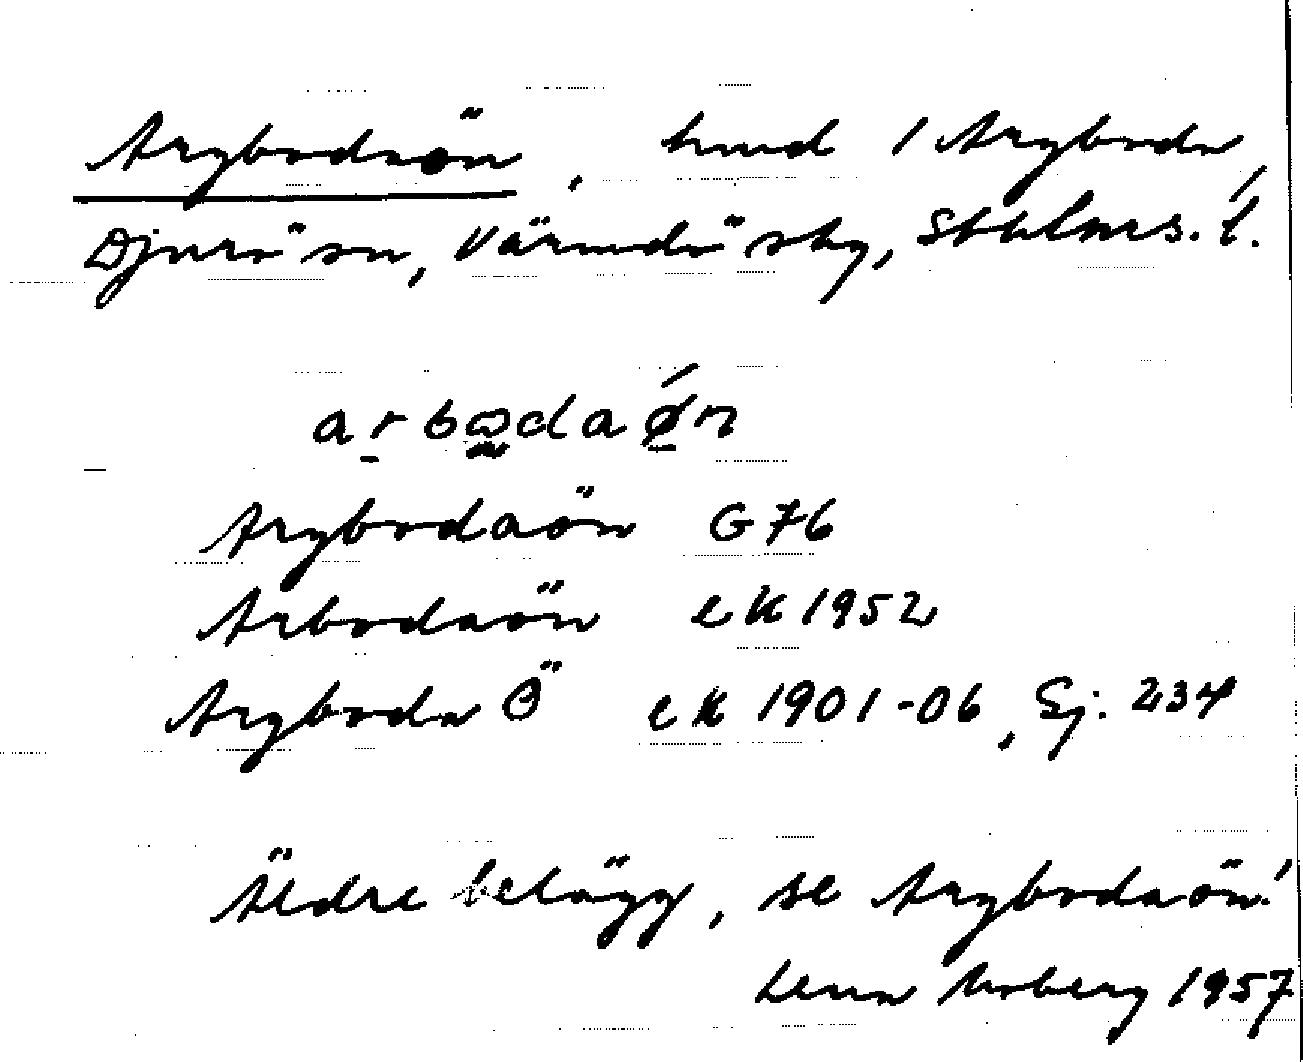 Argbodaön, hmd / Argboda,
Djurö sn, Värmdö sky, Sthlms. l.
arbωdaǿn
Argbodaön G 76
Arbodaön ek 1952
Argboda Ö ek 1901-06, Ej. 234
Äldre belägg, se Argbodaön!
Lena Moberg 1957